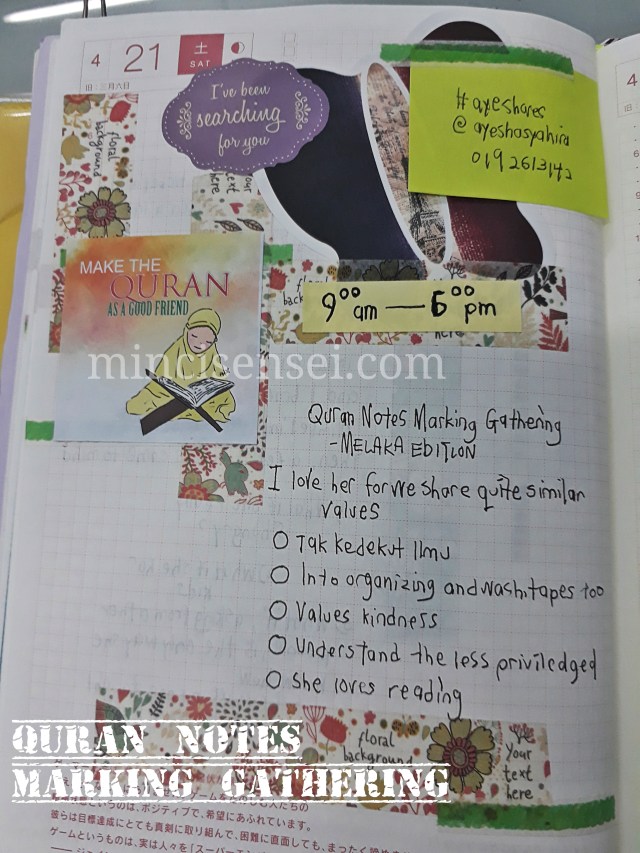 4 21 土
SAT
旧:三月六日
I've been
searching
for you
# ayeshares
@ ayeshasyahira
0192613142
floral
background
your
text
here
MAKE THE
QURAN
AS A GOOD FRIEND
floral
here
9 00 am — 5 00 pm
mincisensei.com
Quran Notes Marking Gathering
- MELAKA EDITION
I love her for we share quite similar
values
Tak kedekut Ilmu
Into organizing and washitapes too
Values kindness
Understand the less priviledged
She loves reading
floral
background
Your
text
here
QURAN NOTES
MARKING GATHERING
いうのは、ポジティブで、希望にあふれています。
彼らは目標達成にとても真剣に取り組んで、困難に直面しても、まったく諦め
ゲームというものは、実は人々を